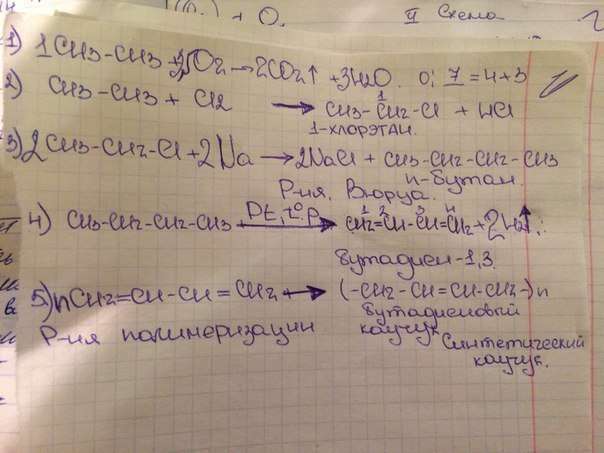 + O₂ II Схема
1) 1CH₃-CH₃ + 3,5O₂ → 2CO₂↑ + 3H₂O. O: 7 = 4+3
2) CH₃-CH₃ + Cl₂ → CH₃-CH₂-Cl + HCl
1
1-хлорэтан.
3) 2CH₃-CH₂-Cl + 2Na → 2NaCl + CH₃-CH₂-CH₂-CH₃
Р-ия. Вюрца. н-бутан.
4) CH₃-CH₂-CH₂-CH₃ Pt, t°, p → CH₂=CH-CH=CH₂ + 2H₂↑
1 2 3 4
бутадиен-1,3.
5) nCH₂=CH-CH=CH₂ → (-CH₂-CH=CH-CH₂-)n
Р-ия полимеризации бутадиеновый
каучук
Синтетический
каучук.